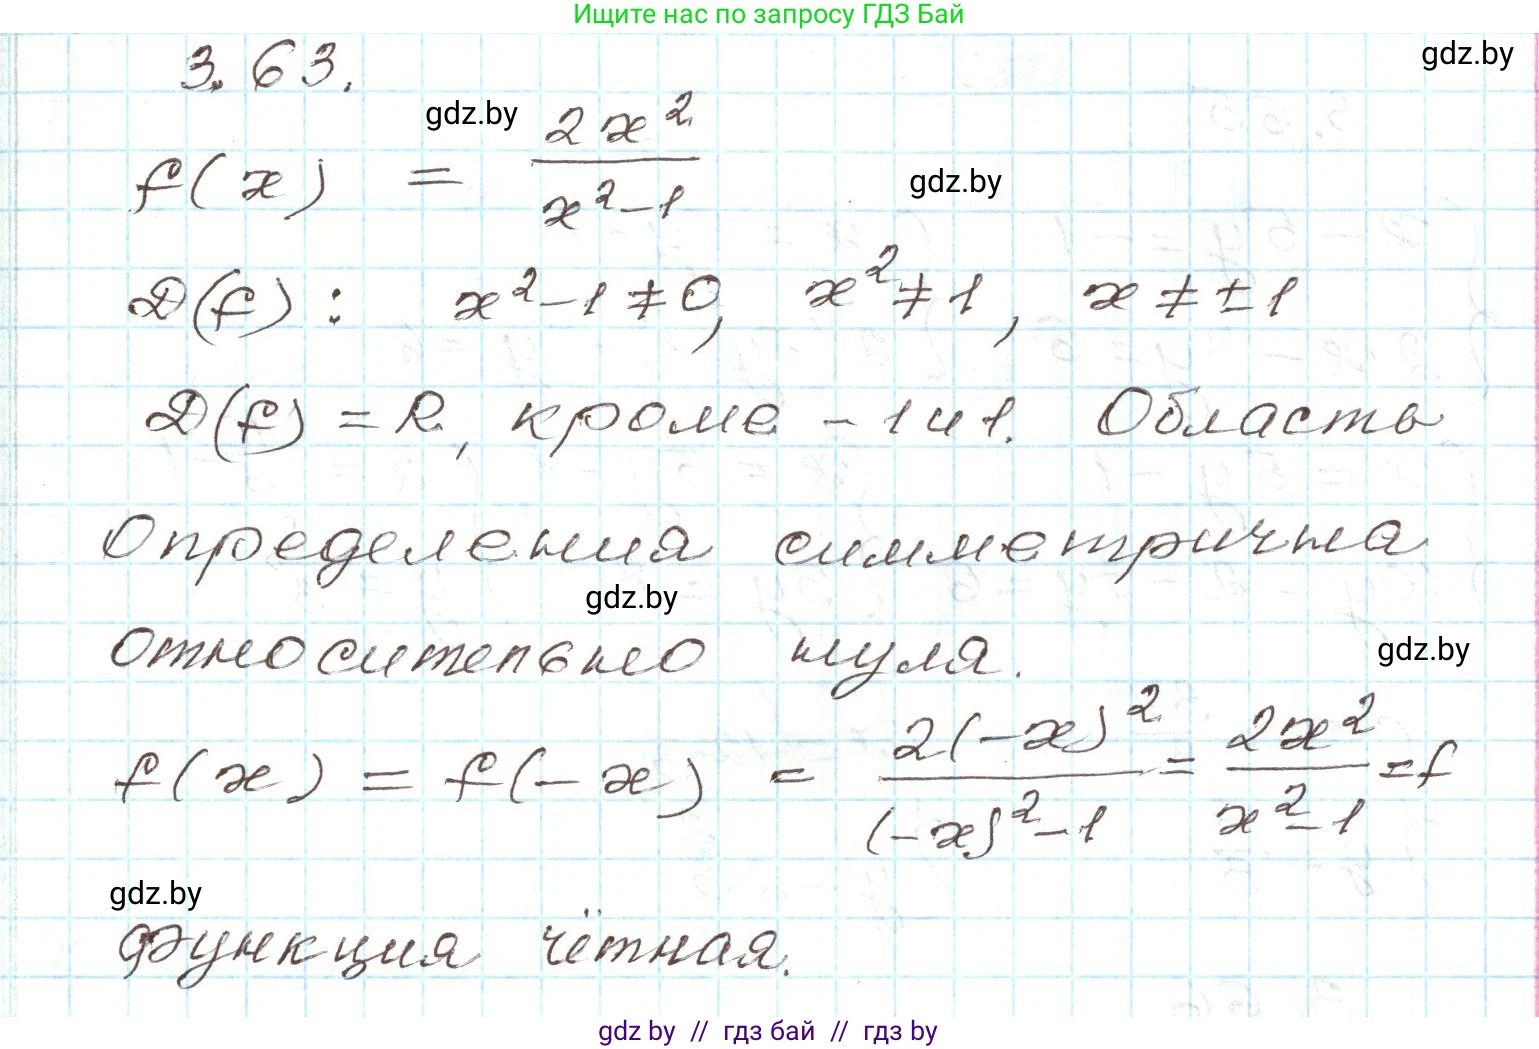 Ищите нас по запросу ГДЗ Бай
gdz.by
3.63.
gdz.by
f(x) = 2x² / x²-1
gdz.by
D(f): x²-1≠0, x²≠1, x≠±1
D(f)=R, кроме -1 и 1. Область
определения симметрична
gdz.by
относительно нуля.
gdz.by
f(x) = f(-x) = 2(-x)² / (-x)²-1 = 2x² / x²-1 = f
gdz.by
Функция чётная.
gdz by // гдз бай // гдз by